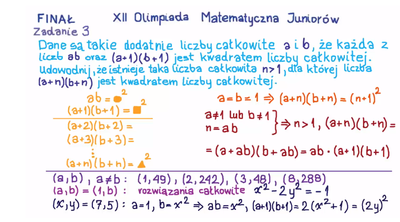 FINAŁ XII Olimpiada Matematyczna Juniorów
Zadanie 3
Dane są takie dodatnie liczby całkowite a i b, że każda z
liczb ab oraz (a+1)(b+1) jest kwadratem liczby całkowitej.
Udowodnij, że istnieje taka liczba całkowita n>1, dla której liczba
(a+n)(b+n) jest kwadratem liczby całkowitej.
ab = ●²
(a+1)(b+1) = ■²
(a+2)(b+2) =
(a+3)(b+3) =
⋮
(a+n)(b+n) = ▲²
a=b=1 ⇒ (a+n)(b+n) = (n+1)²
a≠1 lub b≠1
n=ab
} ⇒ n>1, (a+n)(b+n) =
= (a+ab)(b+ab) = ab·(a+1)(b+1)
(a,b), a≠b: (1,49), (2,242), (3,48), (8,288)
(a,b) = (1,b) rozwiązania całkowite x²-2y²=-1
(x,y)=(7,5): a=1, b=x² ⇒ ab=x², (a+1)(b+1)=2(x²+1)=(2y)²